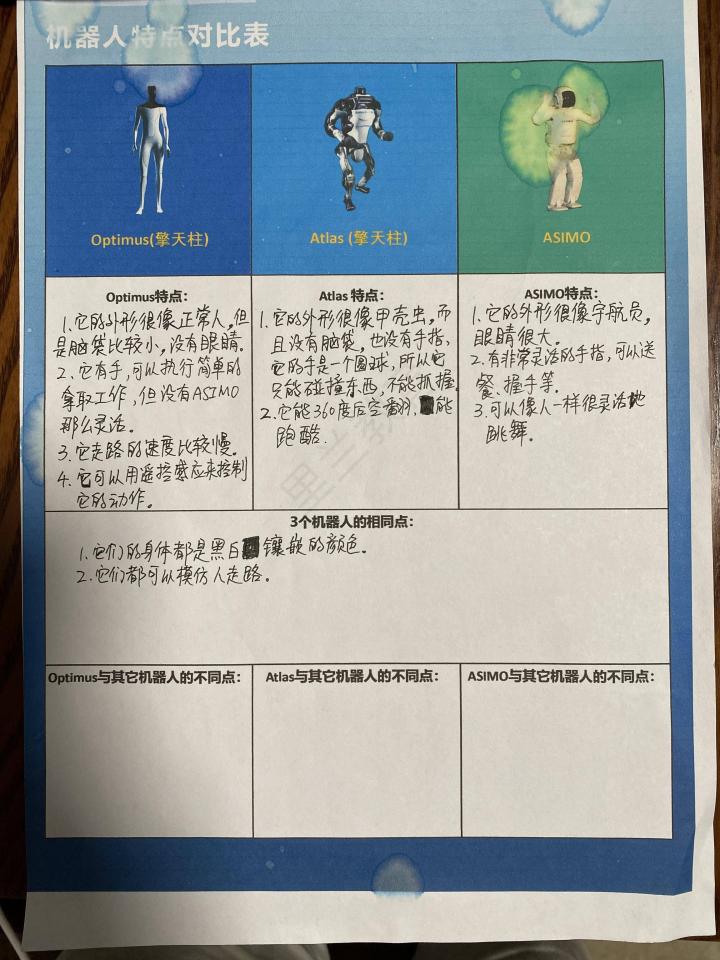 机器人特点对比表
Optimus(擎天柱)
Atlas (擎天柱)
ASIMO
Optimus特点:
1.它的外形很像正常人,但
是脑袋比较小,没有眼睛.
2.它有手,可以执行简单的
拿取工作,但没有ASIMO
那么灵活。
3.它走路的速度比较慢。
4.它可以用遥控感应来控制
它的动作。
Atlas 特点:
1.它的外形很像甲壳虫,而
且没有脑袋,也没有手指,
它的手是一个圆球,所以它
只能碰撞东西,不能抓握.
2.它能360度后空翻,能
跑酷.
ASIMO特点:
1.它的外形很像宇航员,
眼睛很大.
2.有非常灵活的手指,可以送
餐、握手等.
3.可以像人一样很灵活地
跳舞.
3个机器人的相同点:
1.它们的身体都是黑白镶嵌的颜色。
2.它们都可以模仿人走路。
Optimus与其它机器人的不同点:
Atlas与其它机器人的不同点:
ASIMO与其它机器人的不同点: